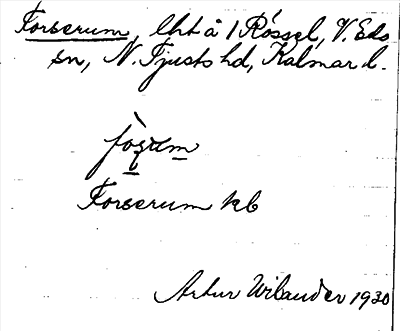 Forserum, lht å 1 Rössel, V. Eds
sn, N. Tjusts hd, Kalmar l.
Forserum kb
Artur Wilander 1930